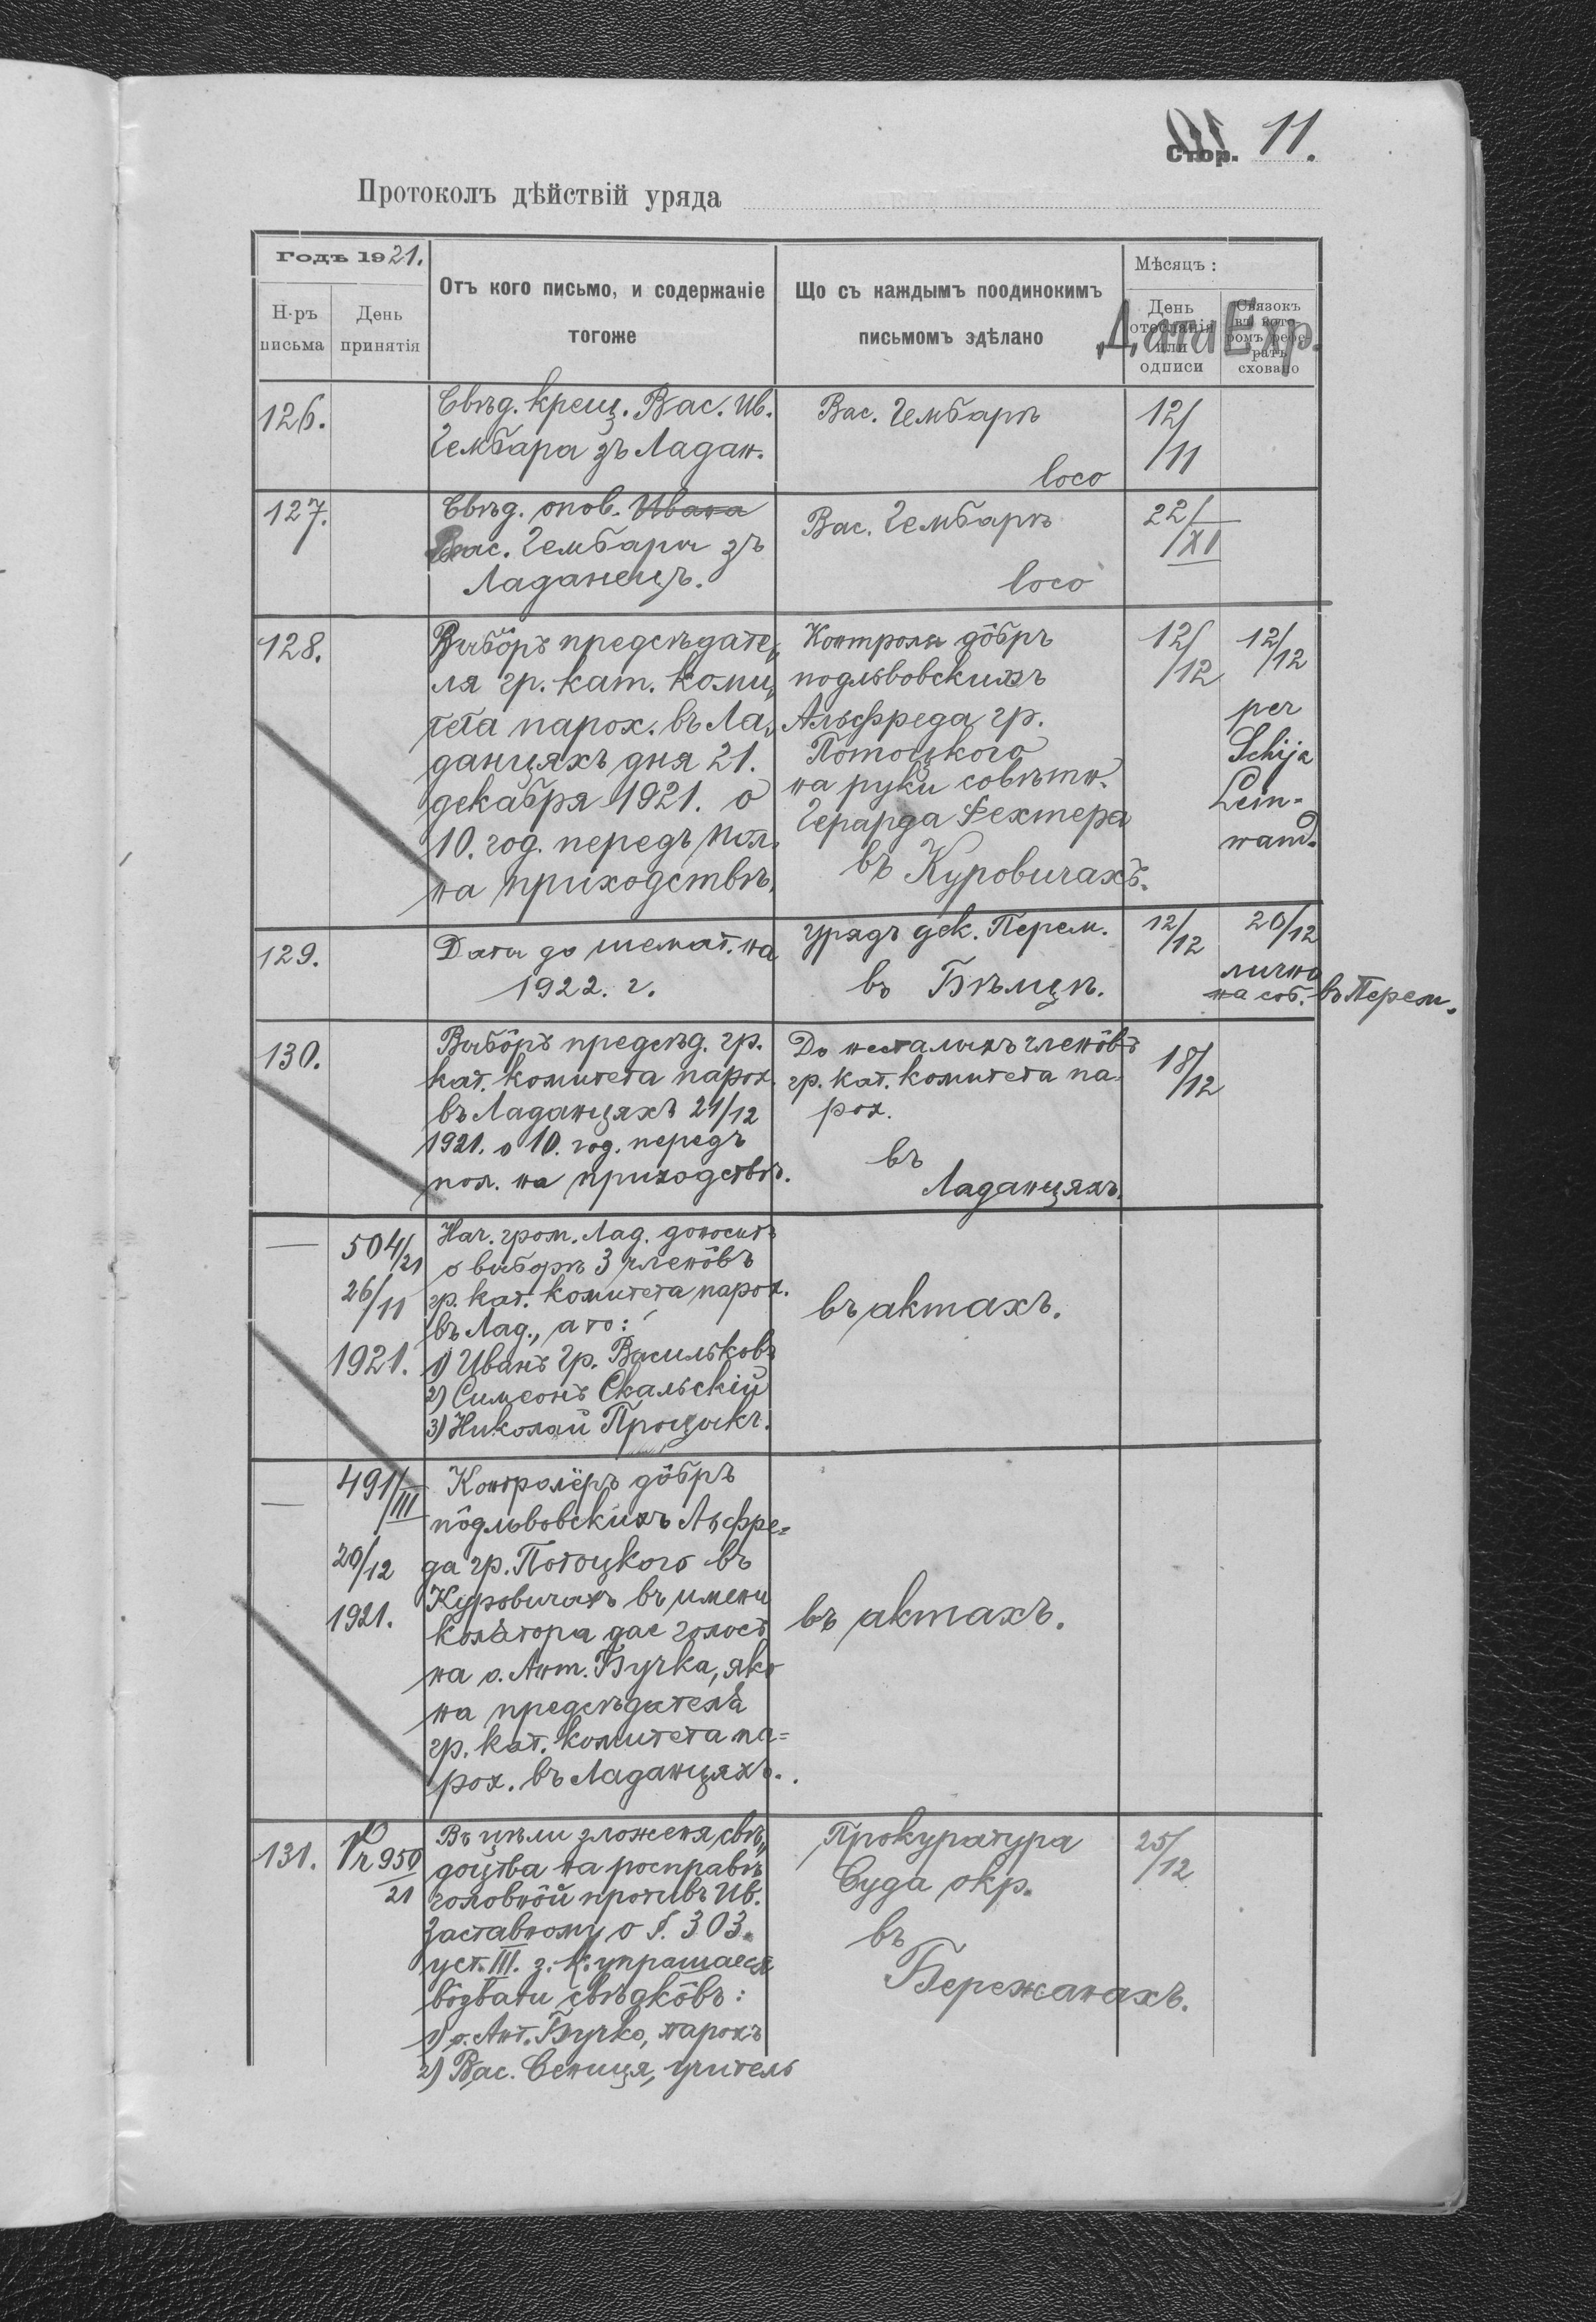 Стор. 11.
Протоколъ дѣйствій уряда
Годъ 1921.
Н-ръ письма
День принятія
Отъ кого письмо, и содержаніе
тогоже
Що съ каждымъ поодинокимъ
письмомъ здѣлано
Мѣсяцъ :
День отосланія или одписи
Связокъ въ кото-ромъ рефе-ратъ сховано
Дата Exp.
126.
Свѣд. крещ. Вас. Ив.
Чембара зъ Ладан.
Вас. Чембарѣ
loco
12/
/11
127.
Свѣд. опов. Ивана
Вас. Чембара зъ
Ладанецъ.
Вас. Чембарѣ
loco
22/
/XI
128.
Выбôръ предсѣдате„
ля гр. кат. коми„
тета парох. въ Ла„
данцяхъ дня 21.
декабря 1921. о
10. год. передъ пол.
на приходствѣ.
Контроля дôбръ
подльвовскихъ
Альфреда гр.
Потоцкого
на руки совѣтн.
Герарда Фехтера
въ Куровичахъ.
12/
/12
12/
/12
per
Schija
Lein-
wand.
129.
Даты до шемат. на
1922. г.
Урядъ дек. Перем.
въ Бѣлцѣ.
12/
/12
20/12
лично
на соб. въ Перем.
130.
Выбôръ предсѣд. гр.
кат. комитета парох.
въ Ладанцяхъ 21/12
1921. о 10. год. передъ
пол. на приходствѣ.
До несталыхъ членôвъ
гр. кат. комитета па-
рох.
въ
Ладанцяхъ.
18/
/12
—
504/21
26/11
1921.
Нач. гром. Лад. доноситъ
о выборѣ 3 членôвъ
гр. кат. комитета парох.
въ Лад., а то:
1) Иванъ Гр. Васильковъ
2) Симеонъ Скальскій
3) Николай Процыкъ.
въ актахъ.
—
491/III
20/12
1921.
Контролёръ дôбръ
пôдльвовскихъ Альфре=
да гр. Потоцкого въ
Куровичахъ въ имени
колятора дае голосъ
на о. Ант. Бучка, яко
на предсѣдателя
гр. кат. комитета па=
рох. въ Ладанцяхъ.
въ актахъ.
131.
Vr 950
21
Въ цѣли зложеня свѣ„
доцтва на росправѣ
головнôй противъ Ив.
Заставному о §. 303.
уст. III. з. к. упрашаеся
вôзвати свѣдкôвъ:
1) о. Ант. Бучко, парохъ
2) Вас. Сениця, учитель
Прокуратура
Суда окр.
въ
Бережанахъ.
25/
/12